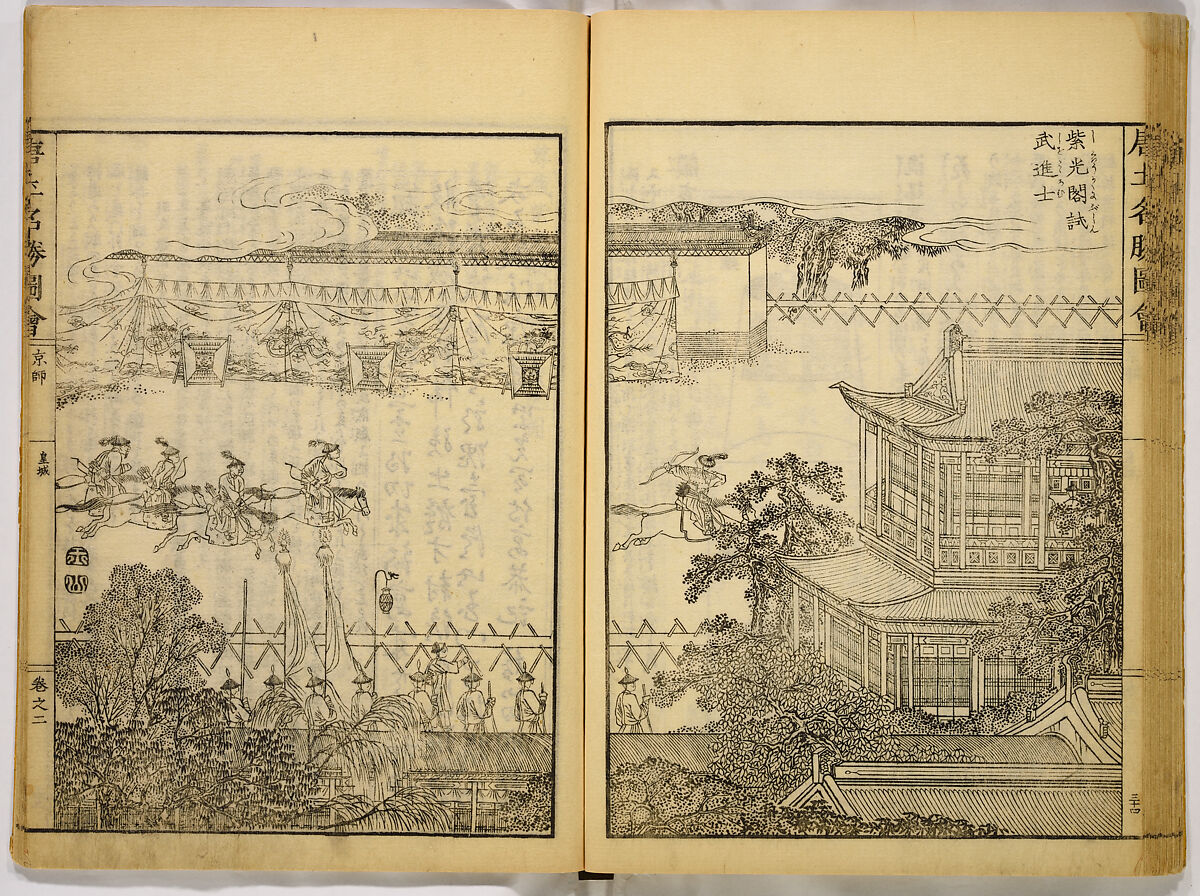 紫光閣試
武進士
唐土名勝圖會
三十四
唐土名勝圖會
京師
皇城
卷之二